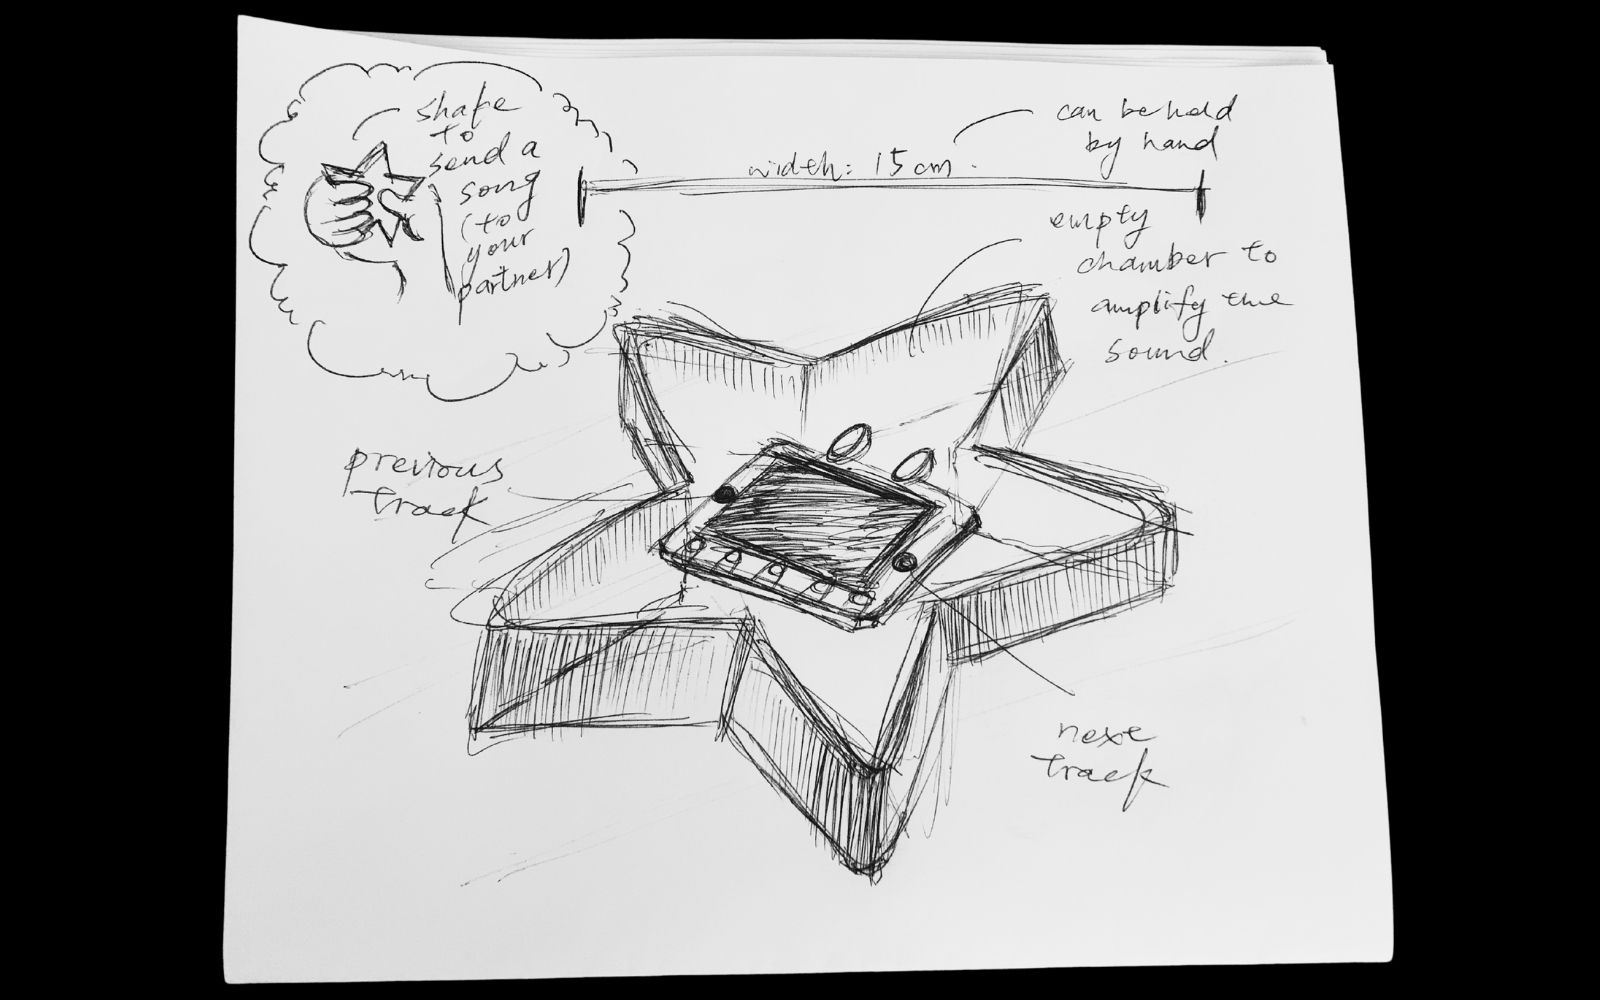 shake
to
send a
song
(to
your
partner)
width: 15 cm.
can be held
by hand
empty
chamber to
amplify the
sound.
previous
track
next
track